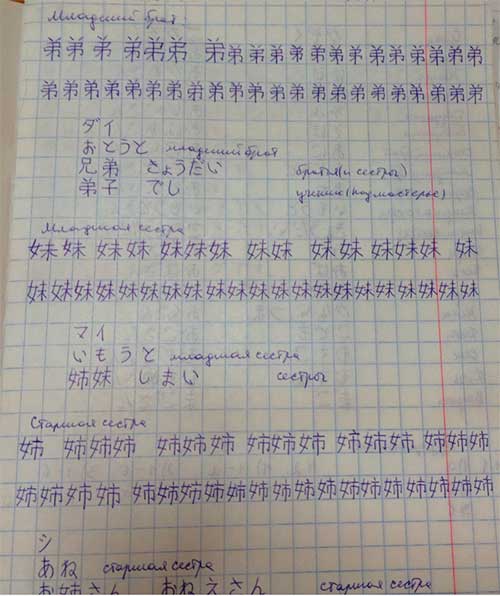 Младший брат:
弟弟弟 弟弟弟 弟弟弟弟弟弟弟弟弟弟弟弟弟
弟弟弟弟弟弟弟弟弟弟弟弟弟弟弟弟弟弟弟弟弟
ダイ
おとうと младший брат
兄弟 きょうだい братья(и сестры)
弟子 でし ученик(подмастерье)
Младшая сестра
妹妹 妹妹 妹妹妹 妹妹 妹妹 妹妹妹 妹
妹妹妹妹妹妹妹妹妹妹妹妹妹妹妹妹妹妹妹妹
マイ
いもうと младшая сестра
姉妹 しまい сестры
Старшая сестра
姉 姉姉姉 姉姉姉 姉姉姉 姉姉姉 姉姉姉
姉姉姉姉 姉姉姉姉姉姉姉姉姉姉姉姉姉姉姉姉
シ
あね старшая сестра
お姉さん おねえさん старшая сестра